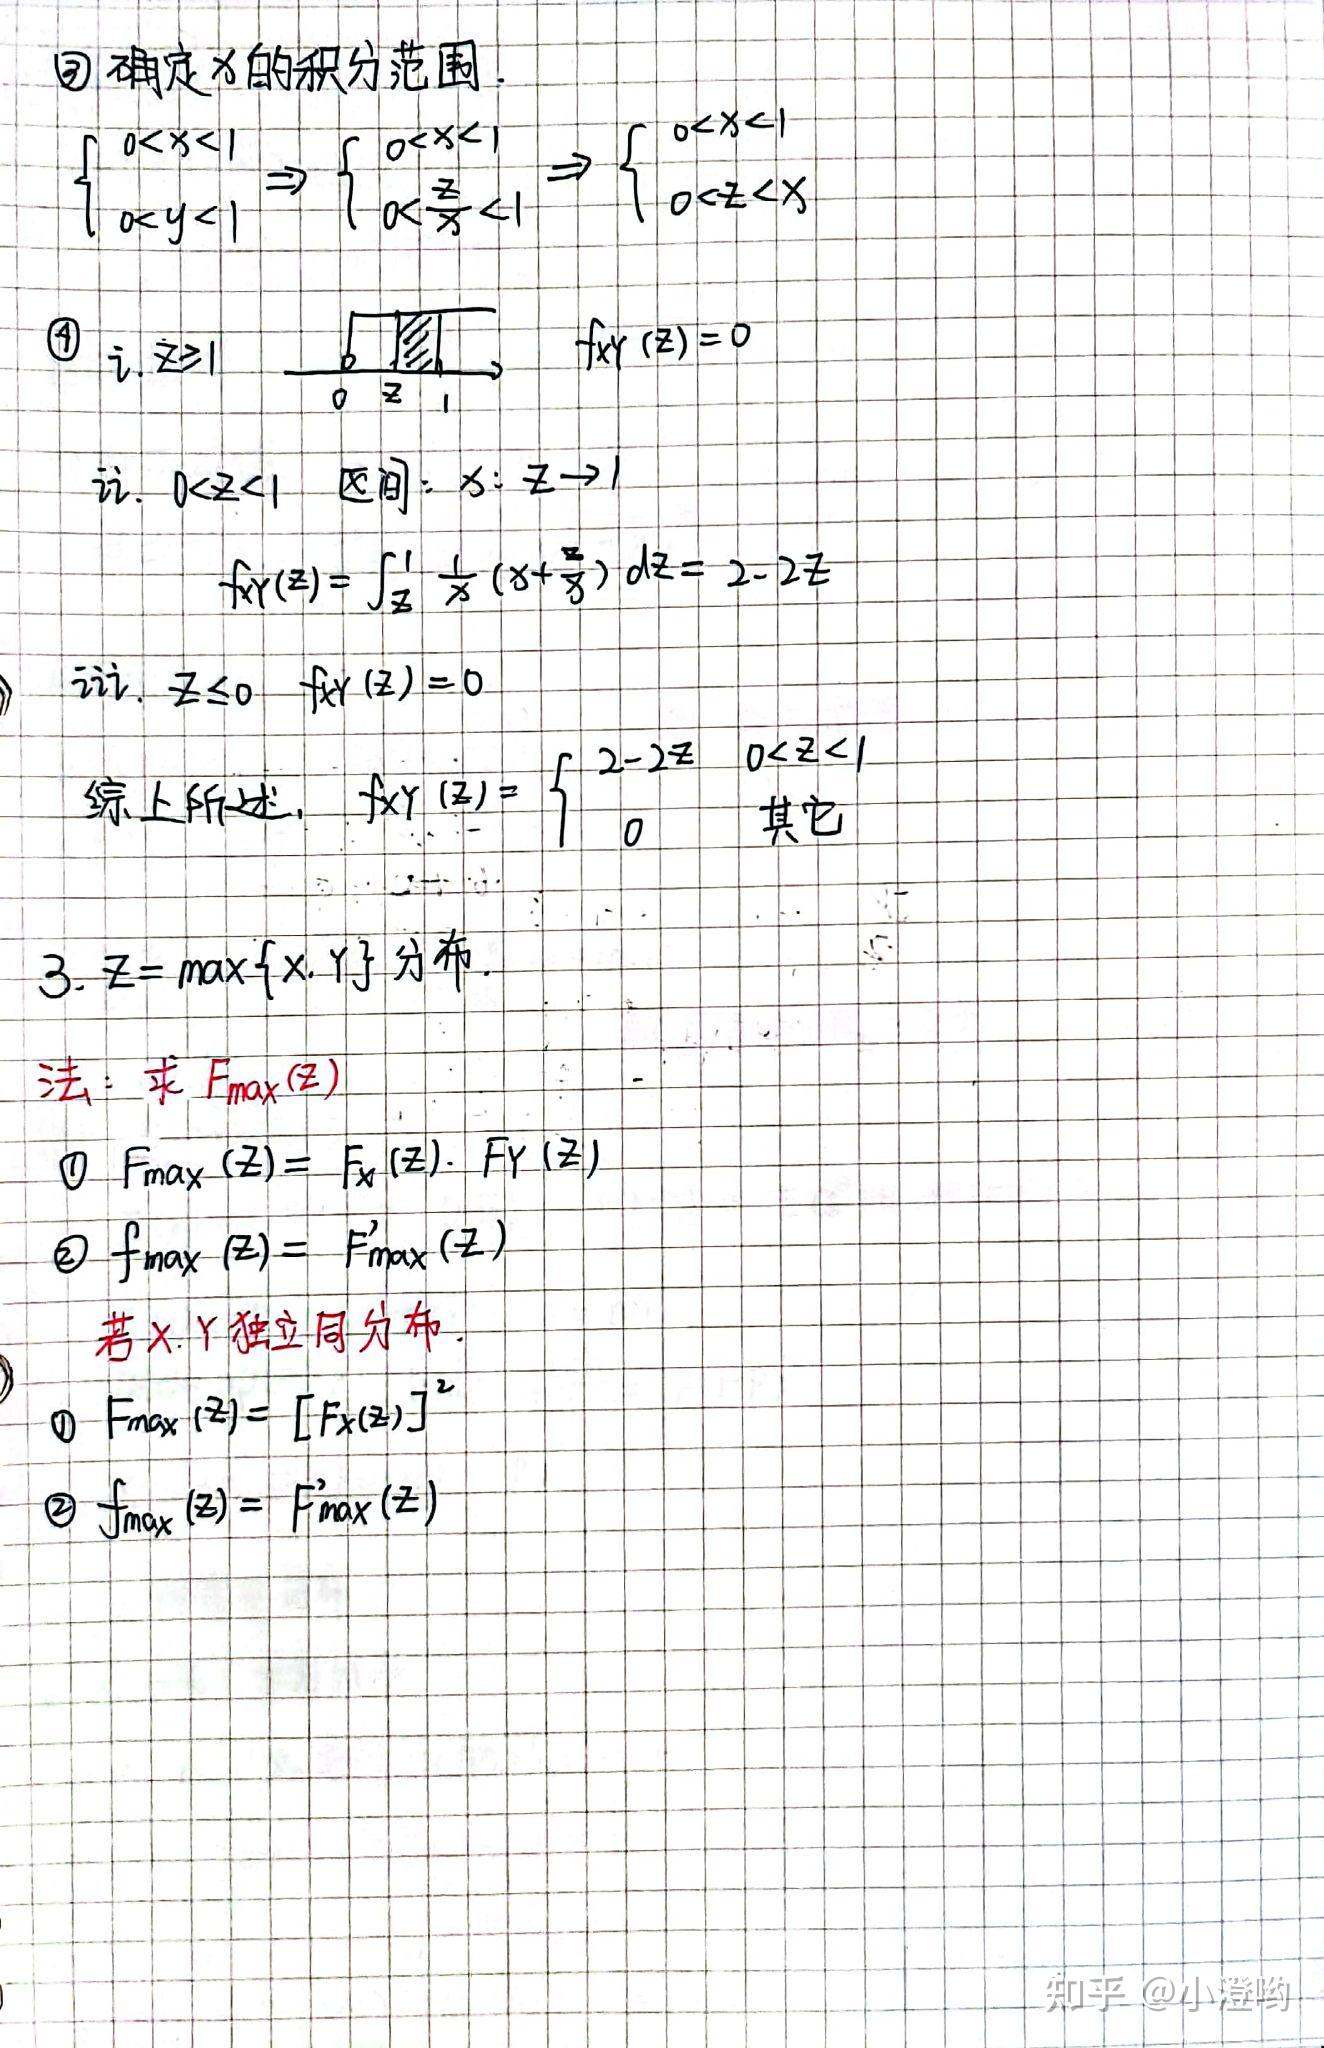 ③ 确定x的积分范围.
{ 0<x<1 0<y<1 ⇒ { 0<x<1 0<z/x<1 ⇒ { 0<x<1 0<z<x
④ i. z≥1 0 z 1 fXY(z)=0
ii. 0<z<1 区间: x: z→1
fXY(z)=∫_z^1 1/x (x+z/x) dz = 2-2z
iii. z≤0 fXY(z)=0
综上所述, fXY(z)= { 2-2z 0<z<1 0 其它
3. Z=max{X.Y}分布.
法: 求 Fmax(z)
① Fmax(z)= Fx(z)· FY(z)
② fmax(z)= F'max(z)
若X.Y独立同分布.
① Fmax(z)= [Fx(z)]²
② fmax(z)= F'max(z)
知乎 @小澄哟